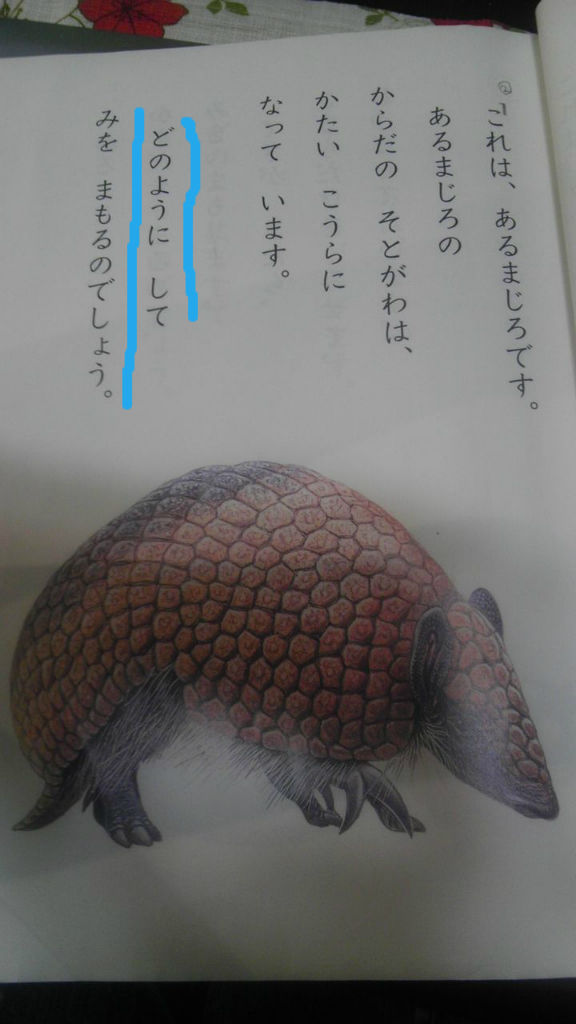 ②
これは、あるまじろです。
あるまじろの
からだの そとがわは、
かたい こうらに
なって います。
どのように して
みを まもるのでしょう。